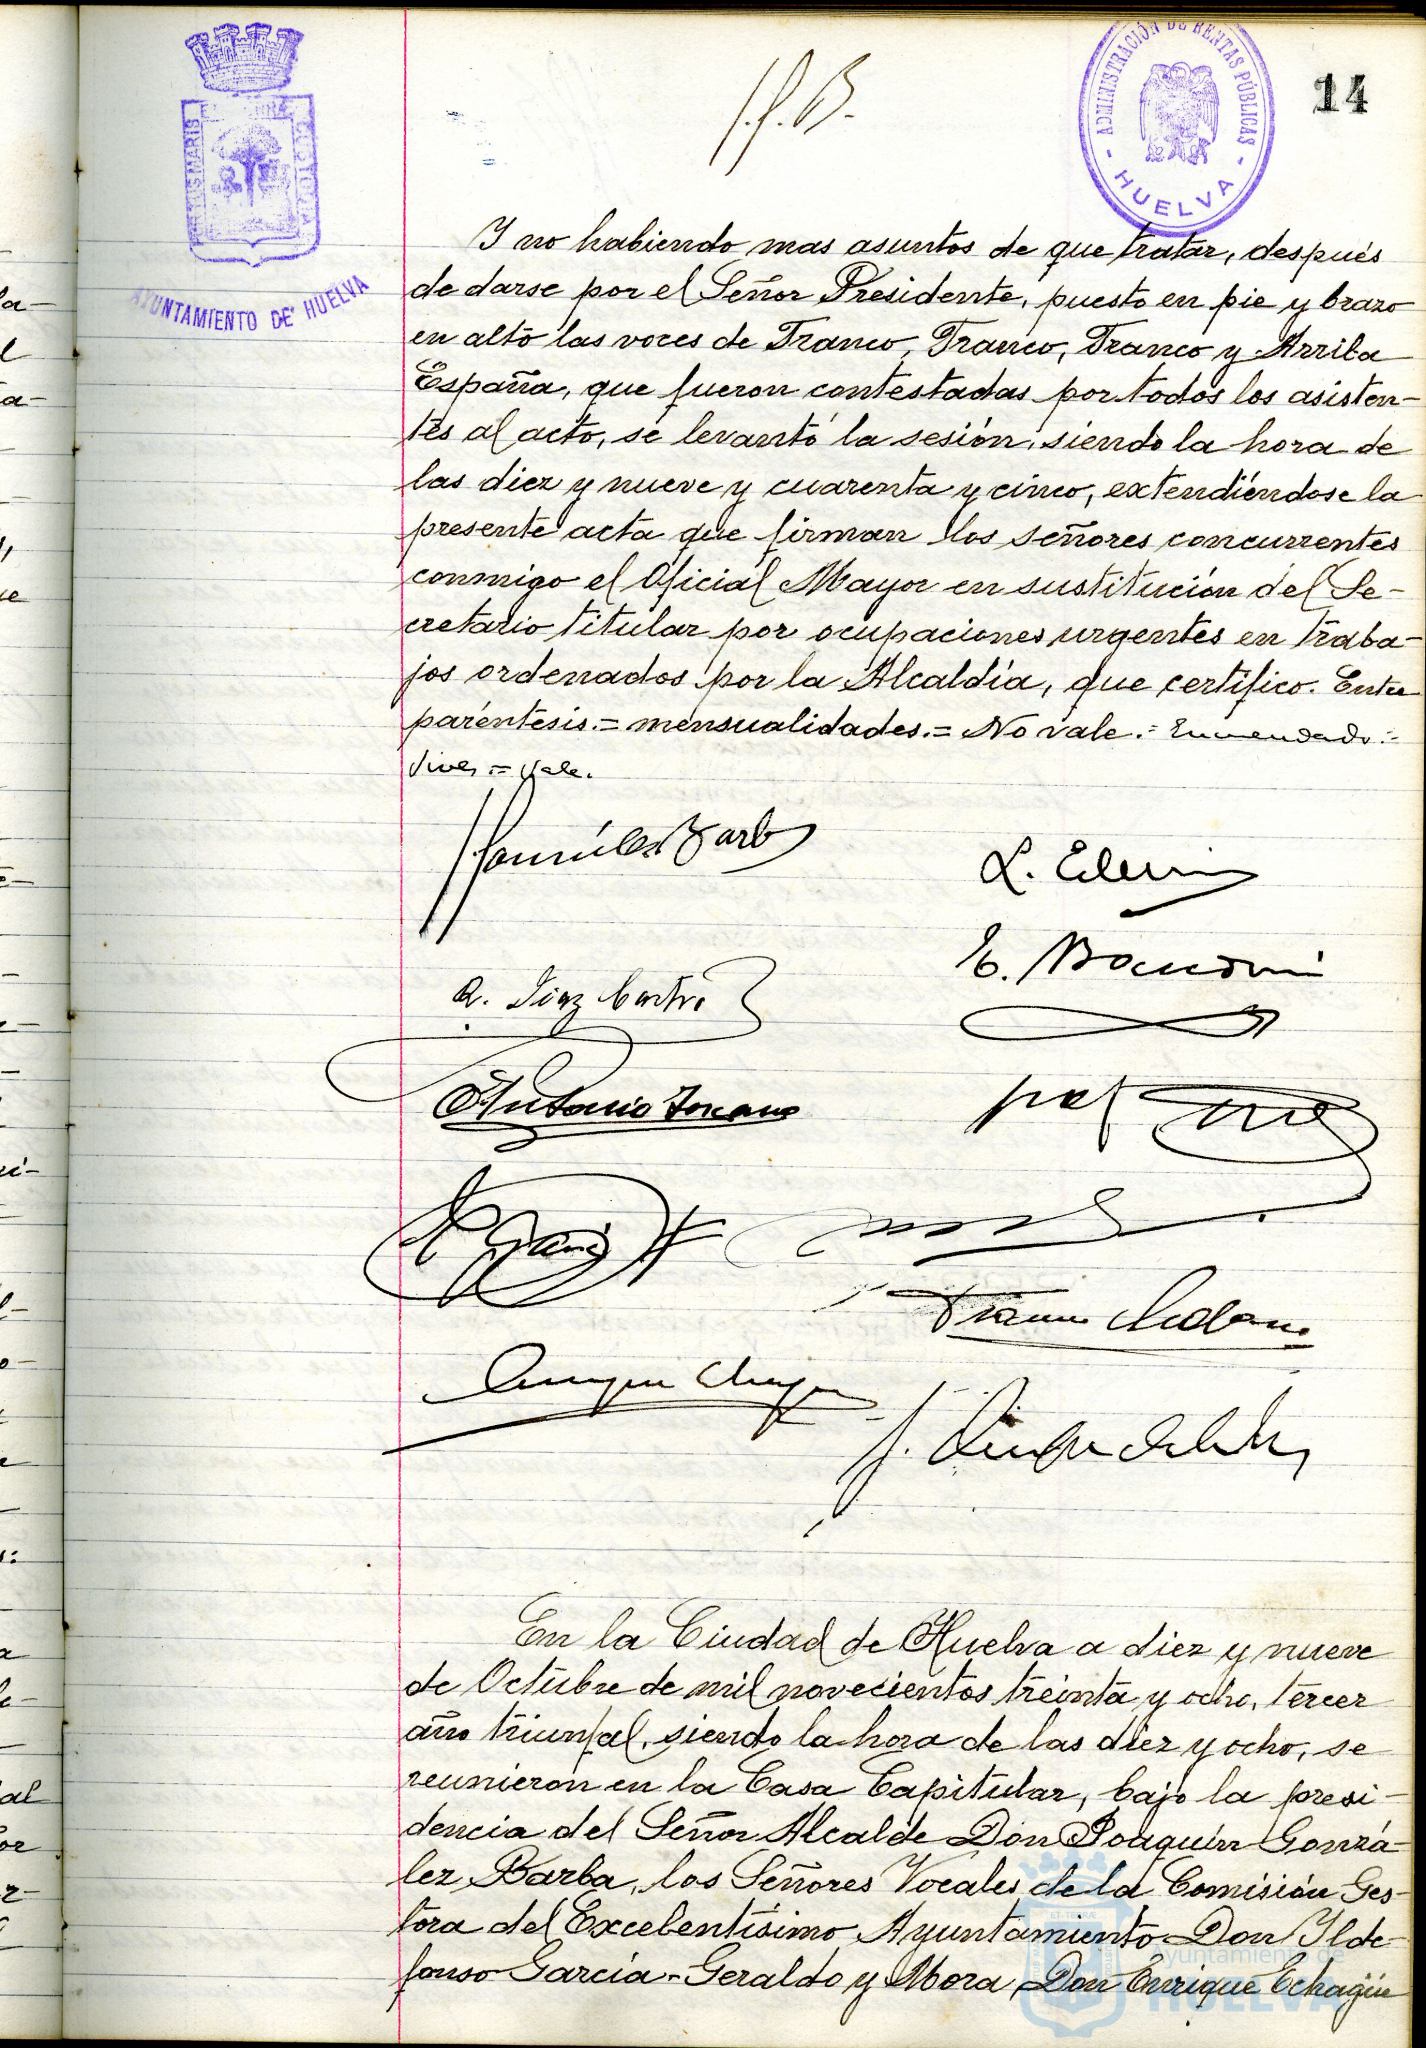 ADMINISTRACIÓN DE RENTAS PÚBLICAS
- HUELVA -
14
AYUNTAMIENTO DE HUELVA
Y no habiendo mas asuntos de que tratar, después
de darse por el Señor Presidente, puesto en pie y brazo
en alto las voces de Franco, Franco, Franco y Arriba
España, que fueron contestadas por todos los asisten-
tes al acto, se levantó la sesión, siendo la hora de
las diez y nueve y cuarenta y cinco, extendiéndose la
presente acta que firman los señores concurrentes
conmigo el Oficial Mayor en sustitución del Se-
cretario titular por ocupaciones urgentes en traba-
jos ordenados por la Alcaldía, que certifico. Entre
paréntesis.= mensualidades.= No vale.= Enmendado:-
= Vale.
González Barba
E.
A. Díaz Castro
Antonio
Enrique Echagüe
En la Ciudad de Huelva a diez y nueve
de Octubre de mil novecientos treinta y ocho, tercer
año triunfal, siendo la hora de las diez y ocho, se
reunieron en la Casa Capitular, bajo la presi-
dencia del Señor Alcalde Don Joaquín Gonzá-
lez Barba, los Señores Vocales de la Comisión Ges-
tora del Excelentísimo Ayuntamiento Don Ylde-
fonso García-Geraldo y Mora, Don Enrique Echagüe
Ayuntamiento de
HUELVA